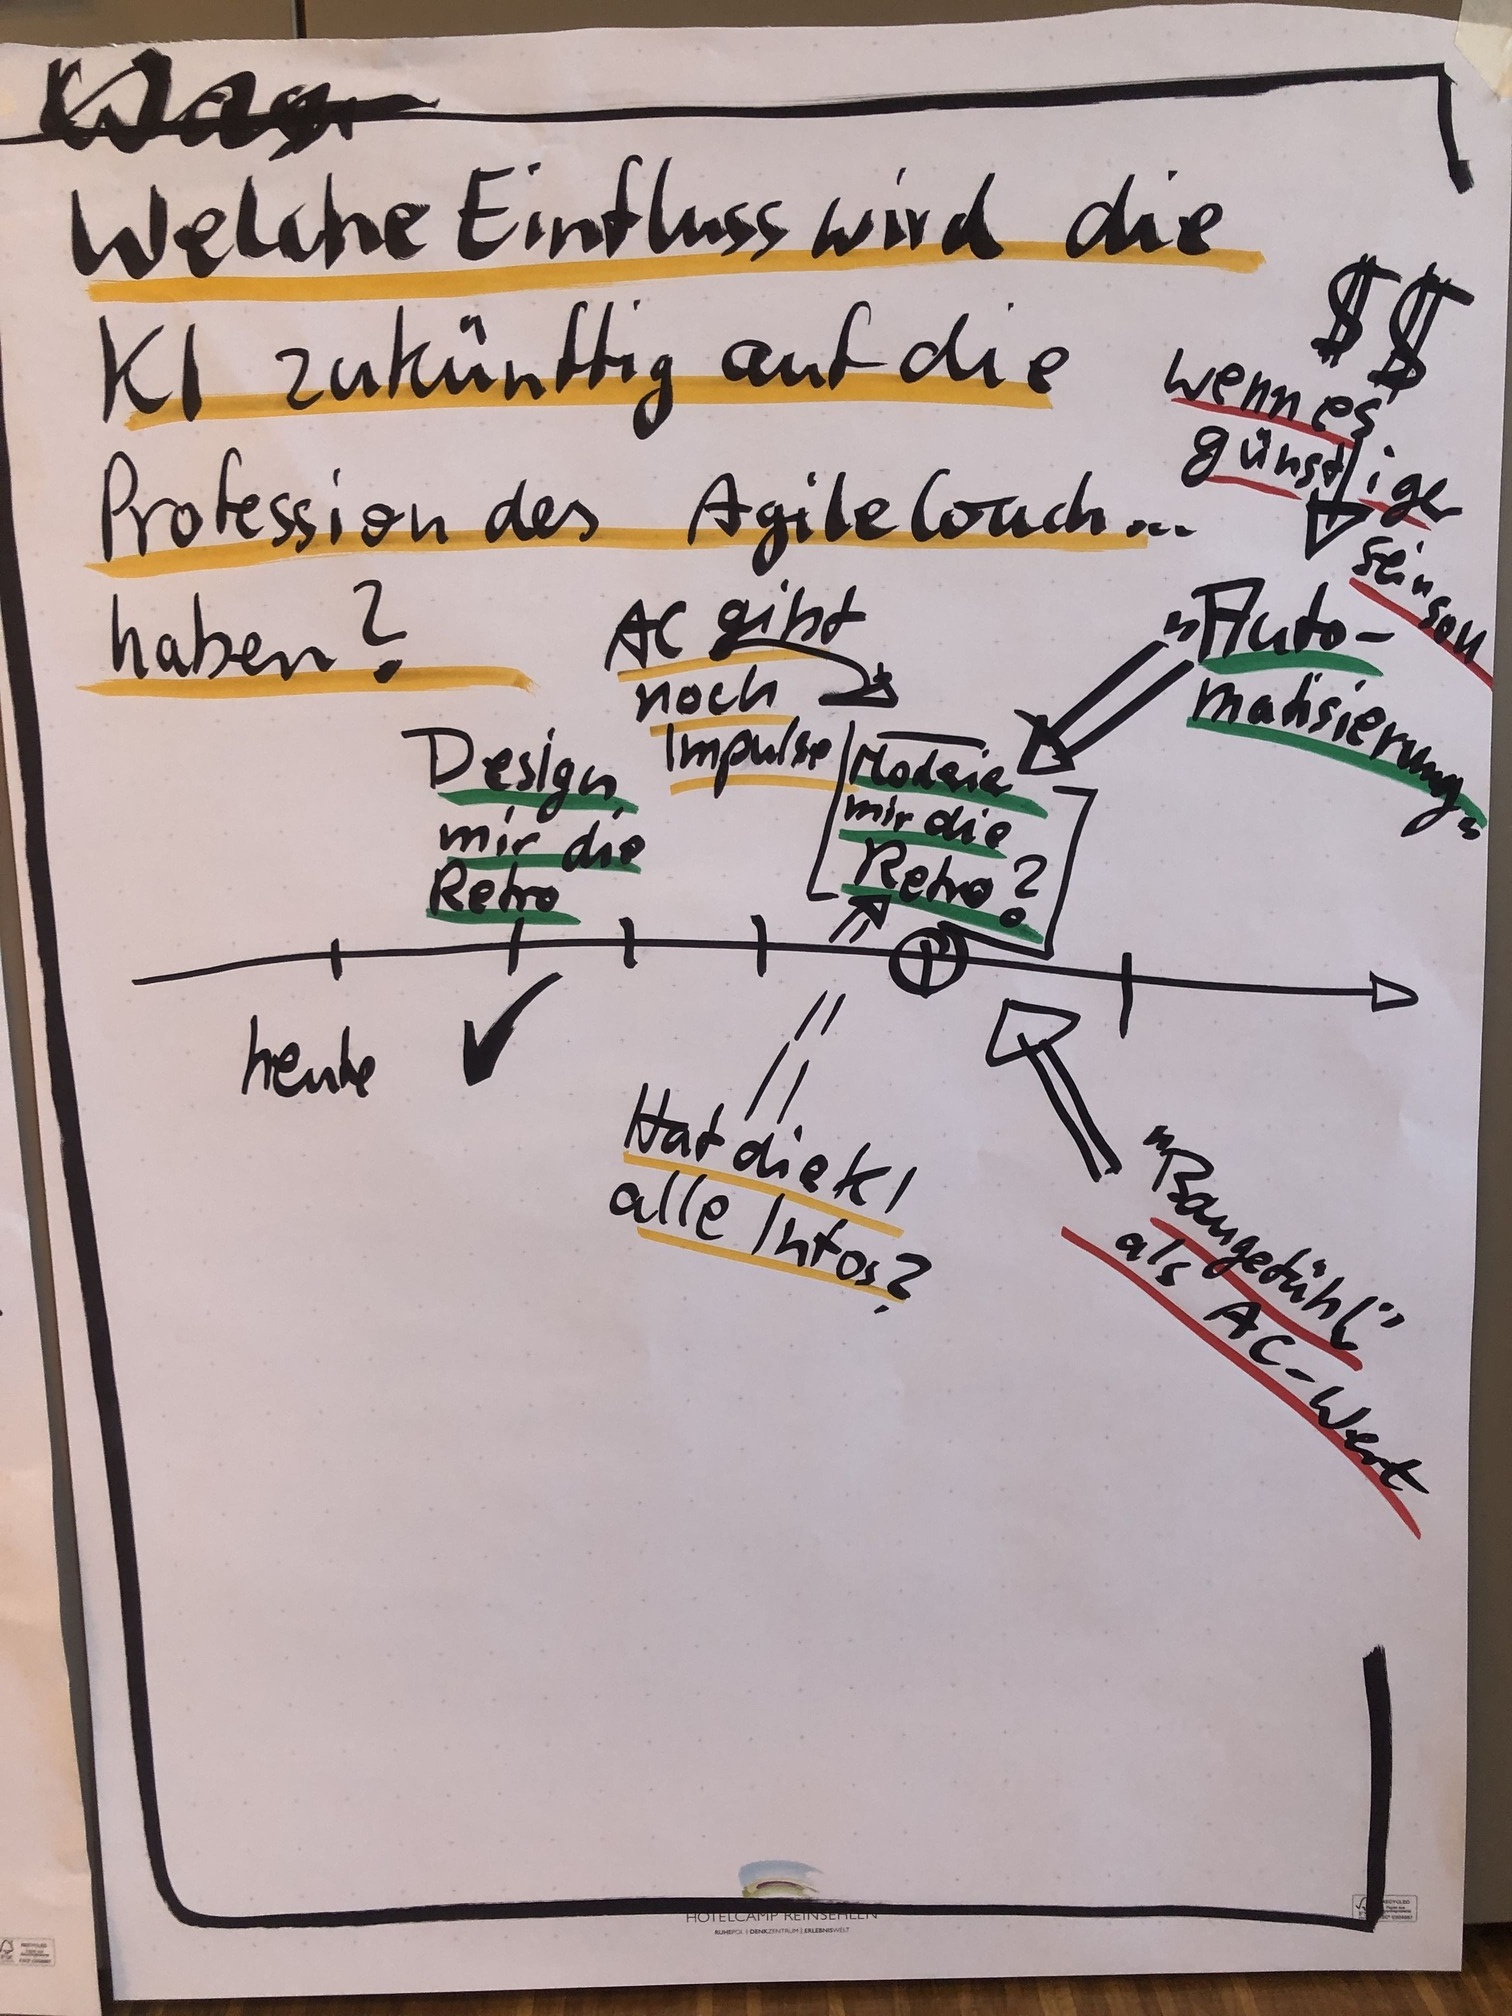 Welche Einfluss wird die
KI zukünftig auf die
Profession des Agile Coach...
haben?
$$
wenn es
günstiger
sein soll
"Auto-
matisierung"
AC gibt
noch
Impulse
Design
mir die
Retro
mir die
Retro?
heute
Hat die KI
alle Infos?
"Baugefühl"
als AC-Wert
HOTELCAMP REINSEHLEN
RUHEPOL | DENKZENTRUM | ERLEBNISWELT